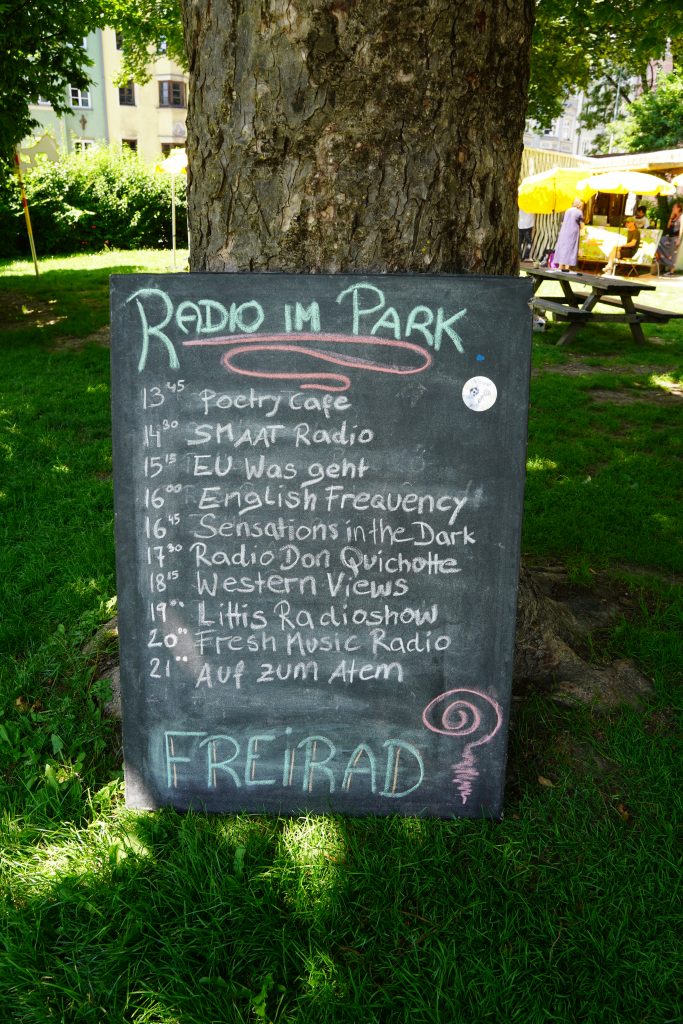 RADIO IM PARK
13 45 Poetry Cafe
14 30 SMAAT Radio
15 15 EU Was geht
16 00 English Frequency
16 45 Sensations in the Dark
17 30 Radio Don Quichotte
18 15 Western Views
19 00 Littis Radioshow
20 00 Fresh Music Radio
21 00 Auf zum Atem
FREIRAD